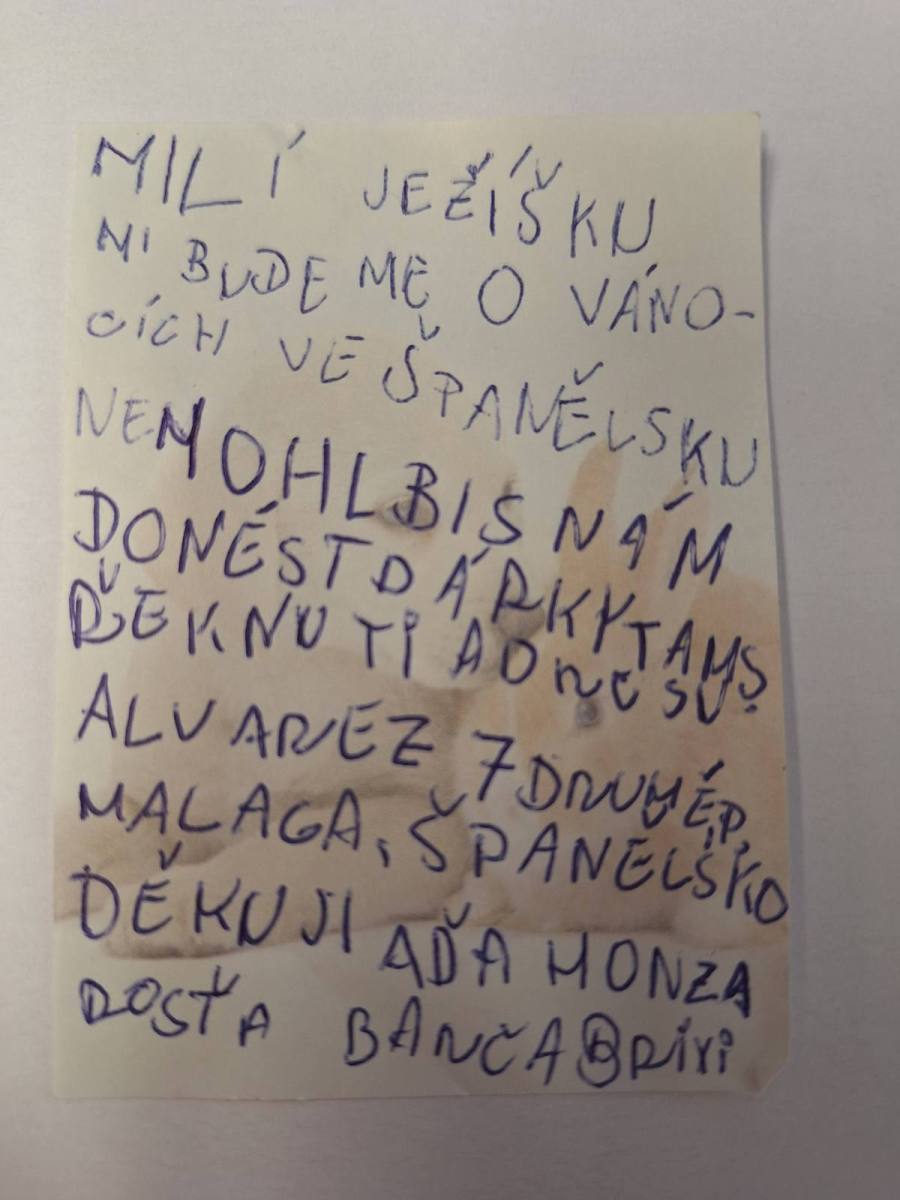 MILÍ JEŽÍŠKU
MI BUDEME O VÁNO-
CÍCH VE ŠPANĚLSKU
NEMOHLBIS NÁM
DONÉST DÁRKY TAM
ŘEKNU TI ADRESU:
ALVAREZ 7 DRUHÉ P.
MALAGA, ŠPANELSKO
DĚKUJI AĎA HONZA
ROSŤA BANČA